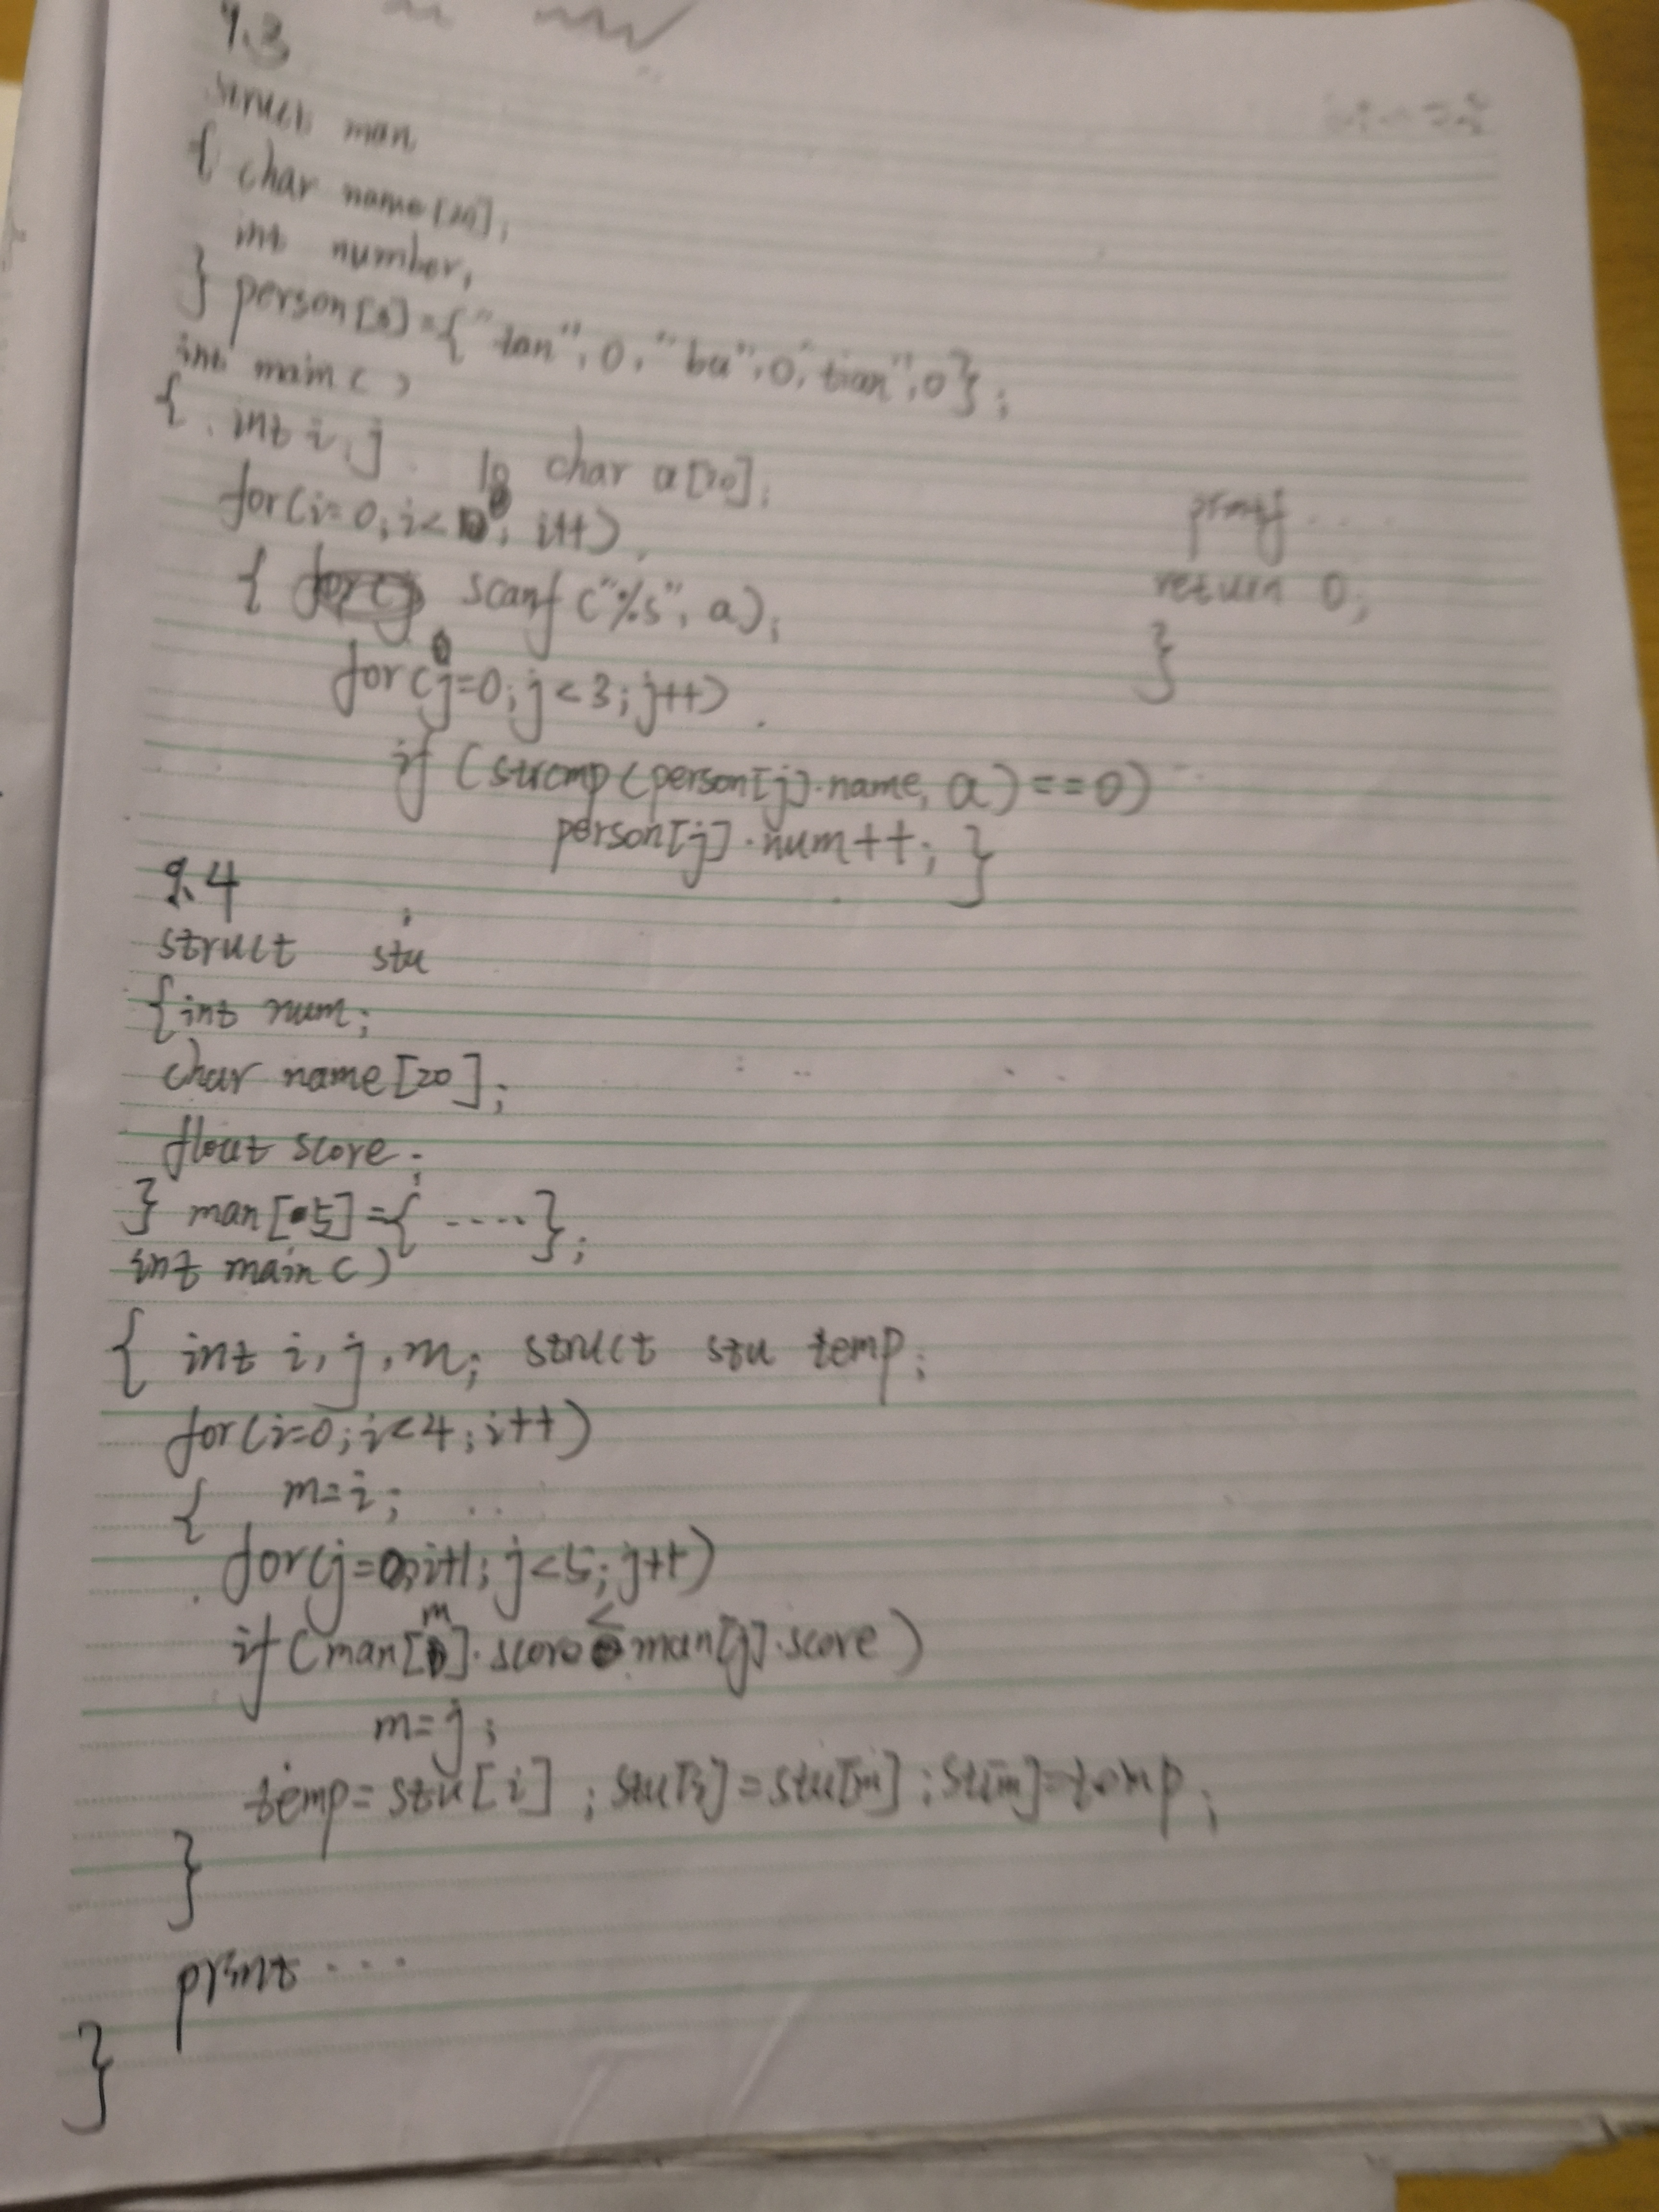 9.3
struct man
{ char name[20];
int number;
} person[3]={"tan",0,"bu",0,"tian",0};
int main()
{ int i,j char a[20];
for(i=0;i<10; i++)
{ scanf("%s", a);
for(j=0;j<3;j++)
if (strcmp(person[j].name, a)==0)
person[j].num++; }
printf....
return 0;
}
9.4
struct stu
{int num;
char name[20];
flout score;
} man[5]={.....};
int main()
{ int i,j,m; struct stu temp;
for(i=0;i<4;i++)
{ m=i;
for(j=i+1;j<5;j++)
if(man[m].score<man[j].score)
m=j;
temp=stu[i];stu[i]=stu[m];stu[m]=temp;
}
print...
}